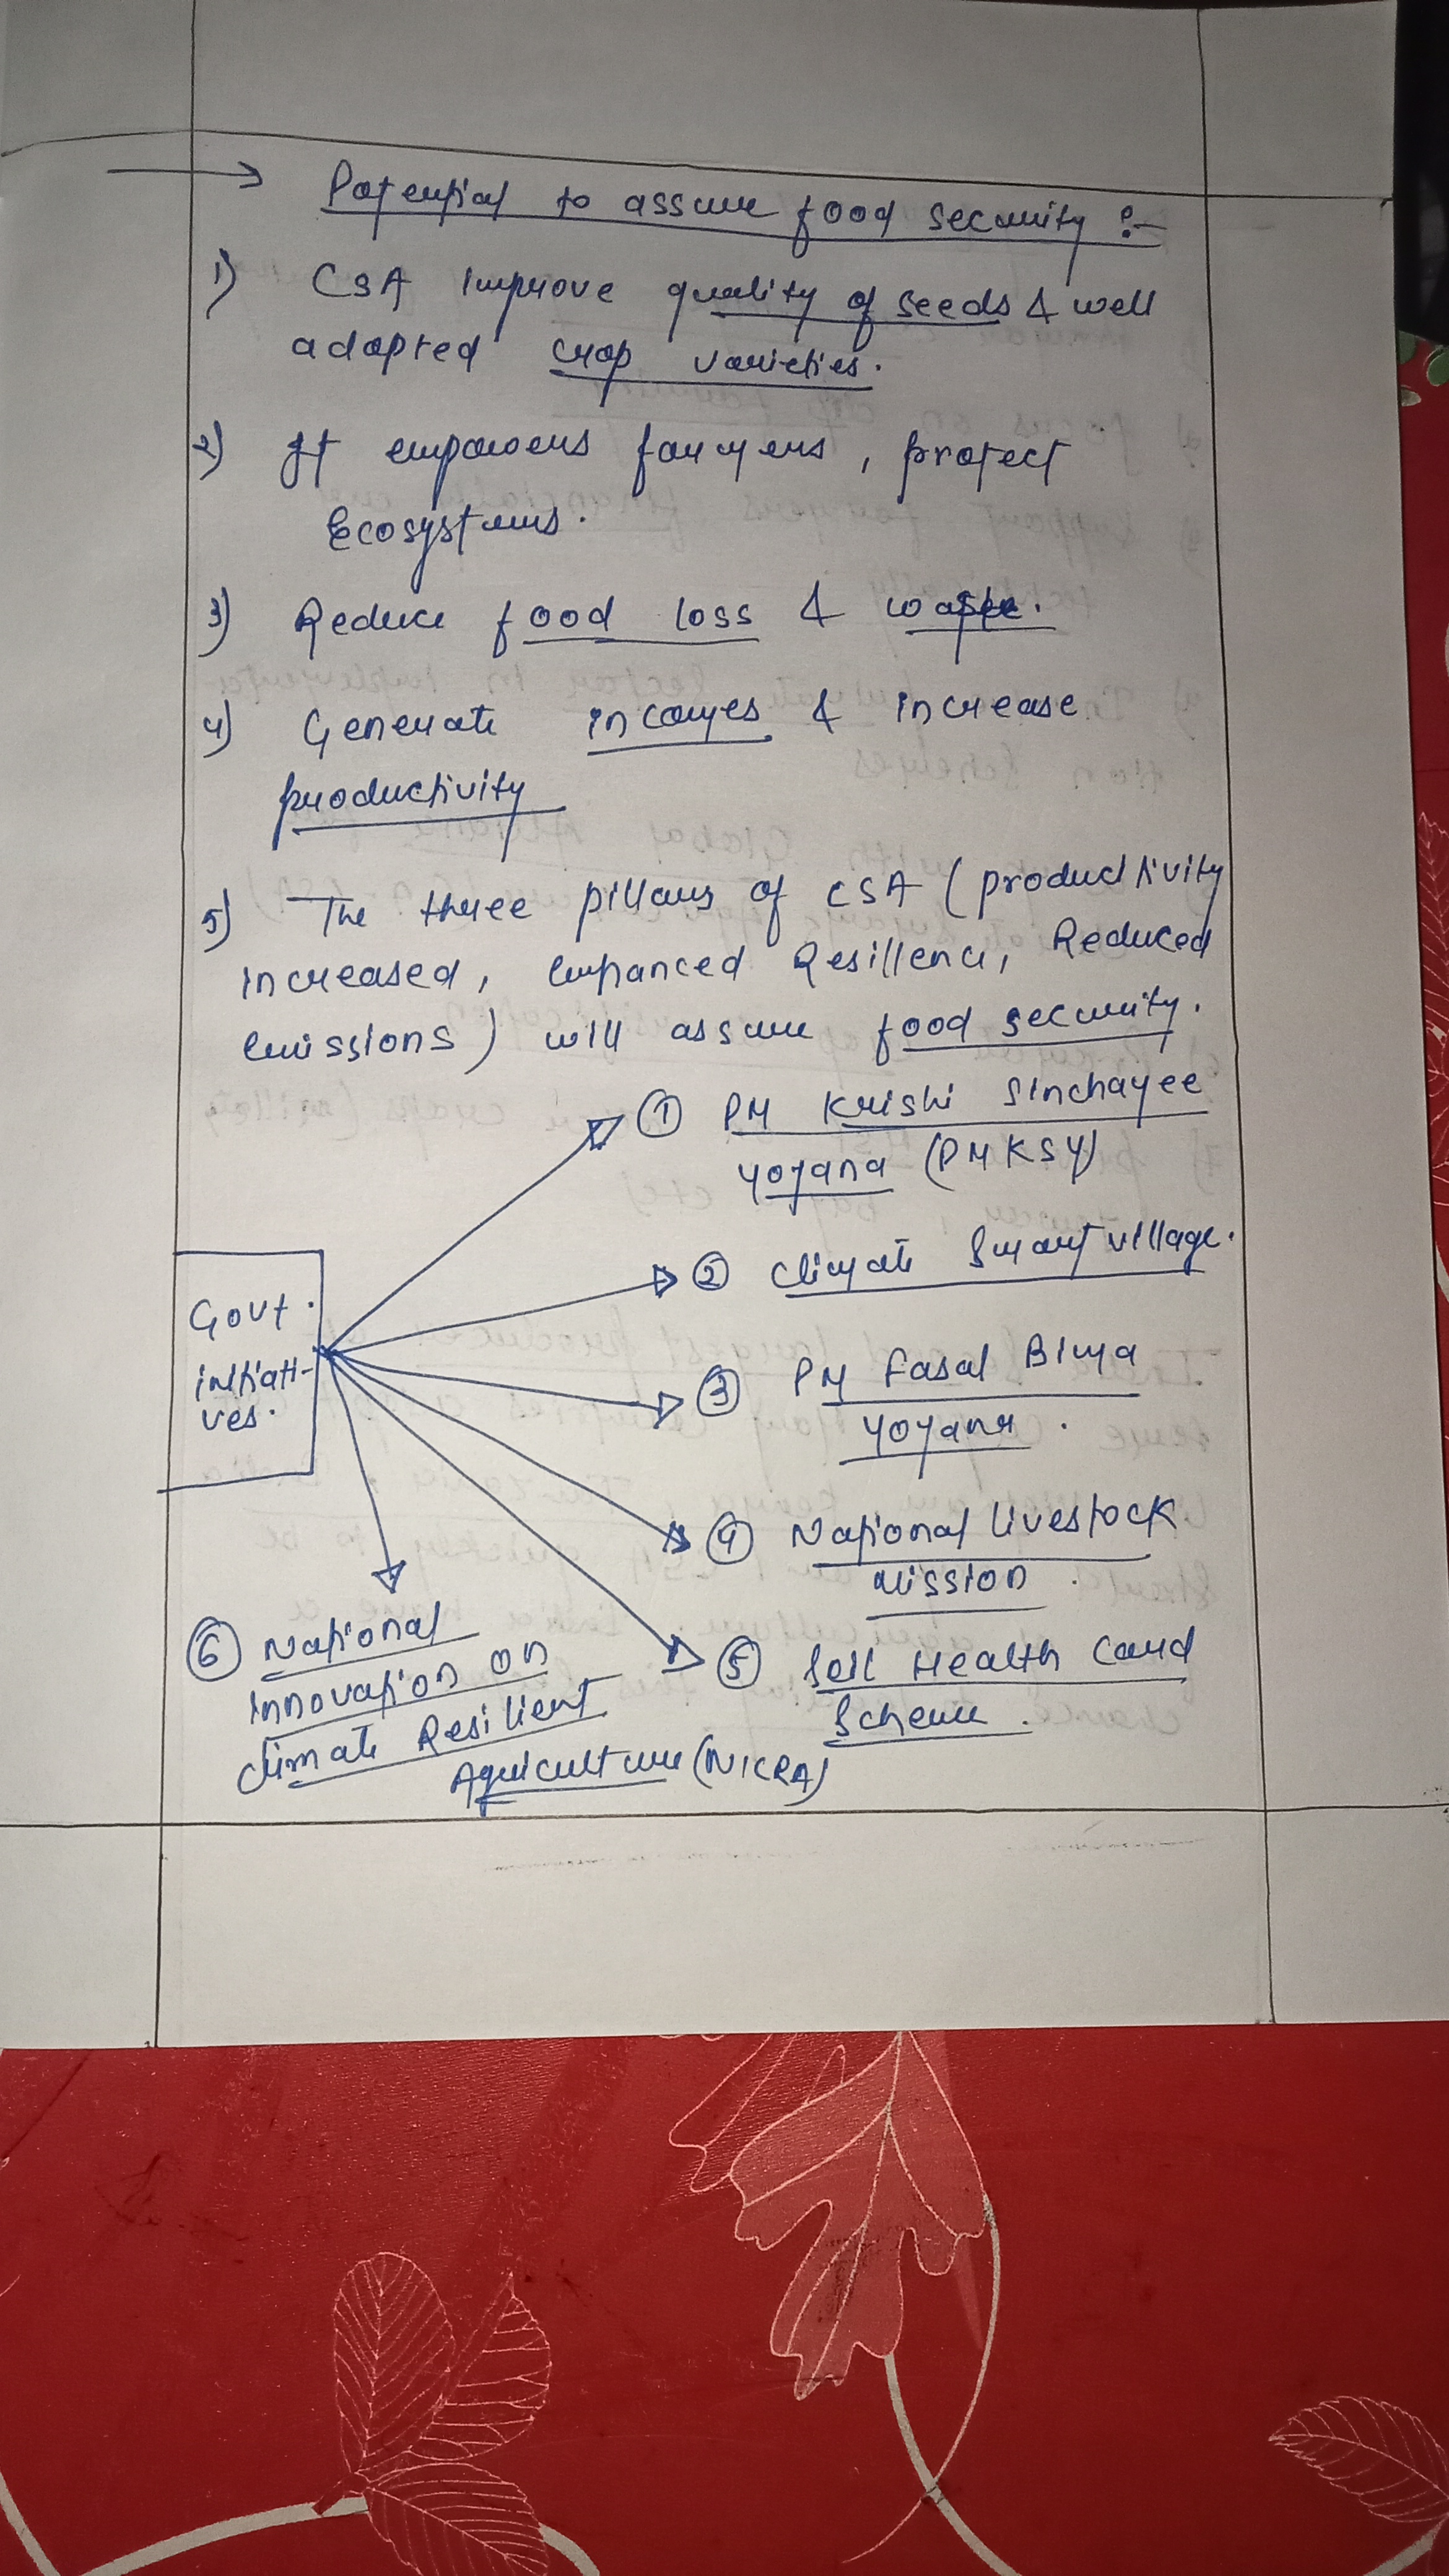 Potential to assure food security :-
1) CSA improve quality of seeds & well
adapted crop varieties.
2) It empowers farmers, protect
Ecosystems.
3) Reduce food loss & waste.
4) Generate incomes & increase
productivity
5) The three pillars of CSA (productivity
increased, enhanced Resillence, Reduced
emissions) will assure food security.
Govt.
initiati-
ves.
① PM Krishi Sinchayee
Yojana (PMKSY)
② Climate Smart village.
③ PM Fasal Bima
Yojana.
④ National Livestock
Mission.
⑤ Soil Health Card
Scheme.
⑥ National
innovation on
Climate Resilient
Agriculture (NICRA)